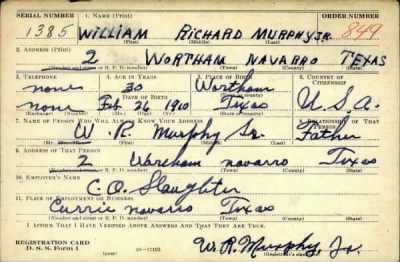 SERIAL NUMBER 1. NAME (Print) ORDER NUMBER
1385 WILLIAM RICHARD MURPHY JR. 849
(First) (Middle) (Last)
2. ADDRESS (Print)
2 WORTHAM NAVARRO TEXAS
(Town) (County) (State)
3. TELEPHONE 4. AGE IN YEARS 5. PLACE OF BIRTH 6. COUNTRY OF CITIZENSHIP
none 30 Wortham
DATE OF BIRTH
none Feb 26 1910 Texas U.S.A.
7. NAME OF PERSON WHO WILL ALWAYS KNOW YOUR ADDRESS 8. RELATIONSHIP OF THAT PERSON
W. R. Murphy Sr. Father
(First) (Middle) (Last)
9. ADDRESS OF THAT PERSON
2 Wareham navarro Texas
(Town) (County) (State)
10. EMPLOYER'S NAME
C. O. Slaughter
11. PLACE OF EMPLOYMENT OR BUSINESS
Currie navarro Texas
(Number and street or R. F. D. number) (Town) (County) (State)
I AFFIRM THAT I HAVE VERIFIED ABOVE ANSWERS AND THAT THEY ARE TRUE.
REGISTRATION CARD
D. S. S. Form 1 W. R. Murphy Jr.